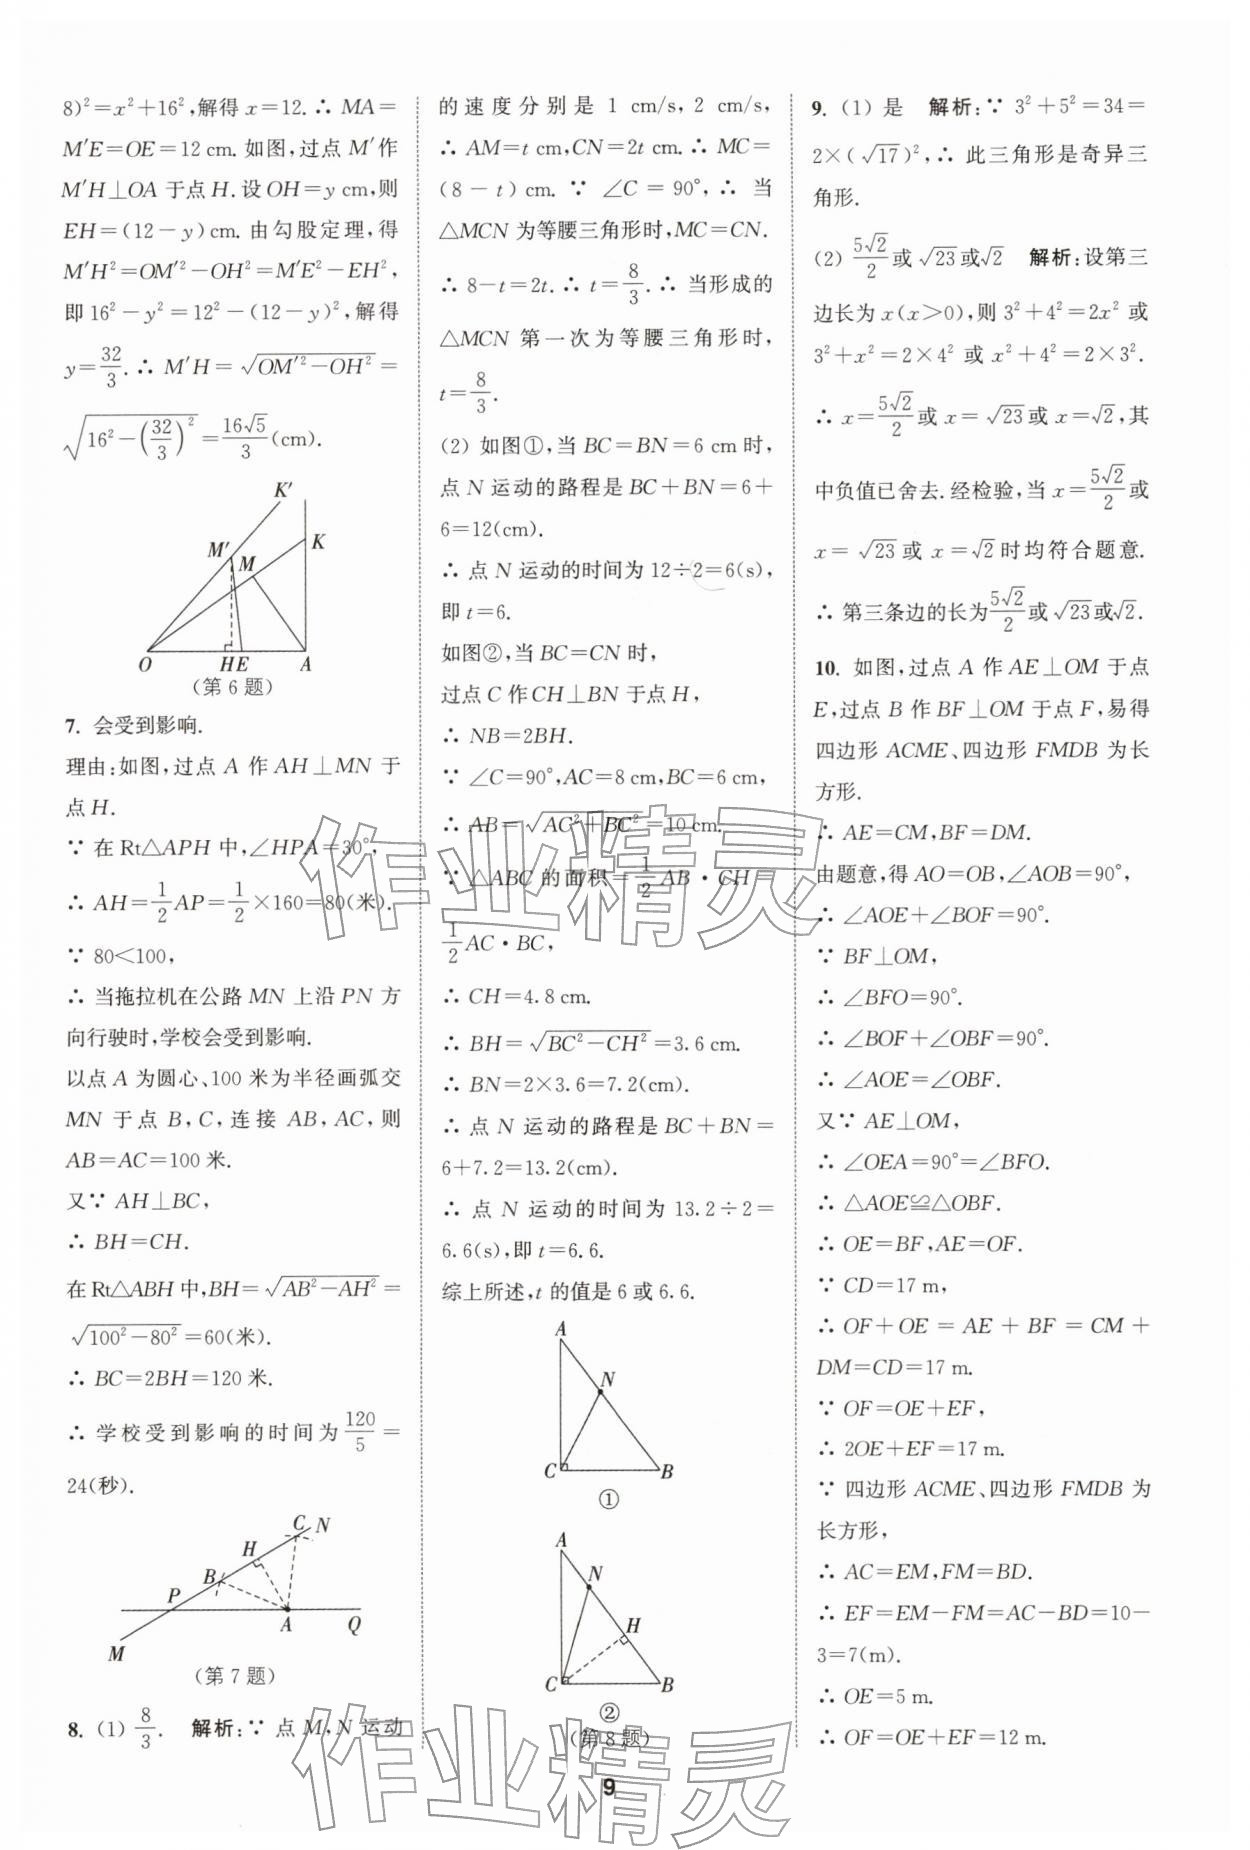 8)²=x²+16²,解得 x=12.∴ MA=
M′E=OE=12 cm.如图,过点 M′作
M′H⊥OA 于点 H.设 OH=y cm,则
EH=(12-y)cm.由勾股定理,得
M′H²=OM′²-OH²=M′E²-EH²,
即 16²-y²=12²-(12-y)²,解得
y=32/3.∴ M′H=√(OM′²-OH²)=
√(16²-(32/3)²)=16√5/3(cm).
K′
K
M′
M
O
H
E
A
(第 6 题)
7. 会受到影响.
理由:如图,过点 A 作 AH⊥MN 于
点 H.
∵ 在 Rt△APH 中,∠HPA=30°,
∴ AH=1/2AP=1/2×160=80(米).
∵ 80<100,
∴ 当拖拉机在公路 MN 上沿 PN 方
向行驶时,学校会受到影响.
以点 A 为圆心、100 米为半径画弧交
MN 于点 B,C,连接 AB,AC,则
AB=AC=100 米.
又∵ AH⊥BC,
∴ BH=CH.
在 Rt△ABH 中,BH=√(AB²-AH²)=
√(100²-80²)=60(米).
∴ BC=2BH=120 米.
∴ 学校受到影响的时间为120/5=
24(秒).
C
N
H
B
P
A
Q
M
(第 7 题)
8. (1) 8/3. 解析:∵ 点 M,N 运动
的速度分别是 1 cm/s,2 cm/s,
∴ AM=t cm,CN=2t cm.∴ MC=
(8-t)cm.∵ ∠C=90°,∴ 当
△MCN 为等腰三角形时,MC=CN.
∴ 8-t=2t.∴ t=8/3.∴ 当形成的
△MCN 第一次为等腰三角形时,
t=8/3.
(2) 如图①,当 BC=BN=6 cm 时,
点 N 运动的路程是 BC+BN=6+
6=12(cm).
∴ 点 N 运动的时间为 12÷2=6(s),
即 t=6.
如图②,当 BC=CN 时,
过点 C 作 CH⊥BN 于点 H,
∴ NB=2BH.
∵ ∠C=90°,AC=8 cm,BC=6 cm,
∴ AB=√(AC²+BC²)=10 cm.
∵ △ABC 的面积=1/2AB·CH=
1/2AC·BC,
∴ CH=4.8 cm.
∴ BH=√(BC²-CH²)=3.6 cm.
∴ BN=2×3.6=7.2(cm).
∴ 点 N 运动的路程是 BC+BN=
6+7.2=13.2(cm).
∴ 点 N 运动的时间为 13.2÷2=
6.6(s),即 t=6.6.
综上所述,t 的值是 6 或 6.6.
A
N
C
B
①
A
N
H
C
B
②
(第 8 题)
9. (1) 是 解析:∵ 3²+5²=34=
2×(√17)²,∴ 此三角形是奇异三
角形.
(2) 5√2/2或√23或√2 解析:设第三
边长为 x(x>0),则 3²+4²=2x² 或
3²+x²=2×4² 或 x²+4²=2×3².
∴ x=5√2/2或 x=√23或 x=√2,其
中负值已舍去.经检验,当 x=5√2/2或
x=√23或 x=√2时均符合题意.
∴ 第三条边的长为5√2/2或√23或√2.
10. 如图,过点 A 作 AE⊥OM 于点
E,过点 B 作 BF⊥OM 于点 F,易得
四边形 ACME、四边形 FMDB 为长
方形.
∴ AE=CM,BF=DM.
由题意,得 AO=OB,∠AOB=90°,
∴ ∠AOE+∠BOF=90°.
∵ BF⊥OM,
∴ ∠BFO=90°.
∴ ∠BOF+∠OBF=90°.
∴ ∠AOE=∠OBF.
又∵ AE⊥OM,
∴ ∠OEA=90°=∠BFO.
∴ △AOE≌△OBF.
∴ OE=BF,AE=OF.
∵ CD=17 m,
∴ OF+OE=AE+BF=CM+
DM=CD=17 m.
∵ OF=OE+EF,
∴ 2OE+EF=17 m.
∵ 四边形 ACME、四边形 FMDB 为
长方形,
∴ AC=EM,FM=BD.
∴ EF=EM-FM=AC-BD=10-
3=7(m).
∴ OE=5 m.
∴ OF=OE+EF=12 m.
作业精灵
作业精灵
9